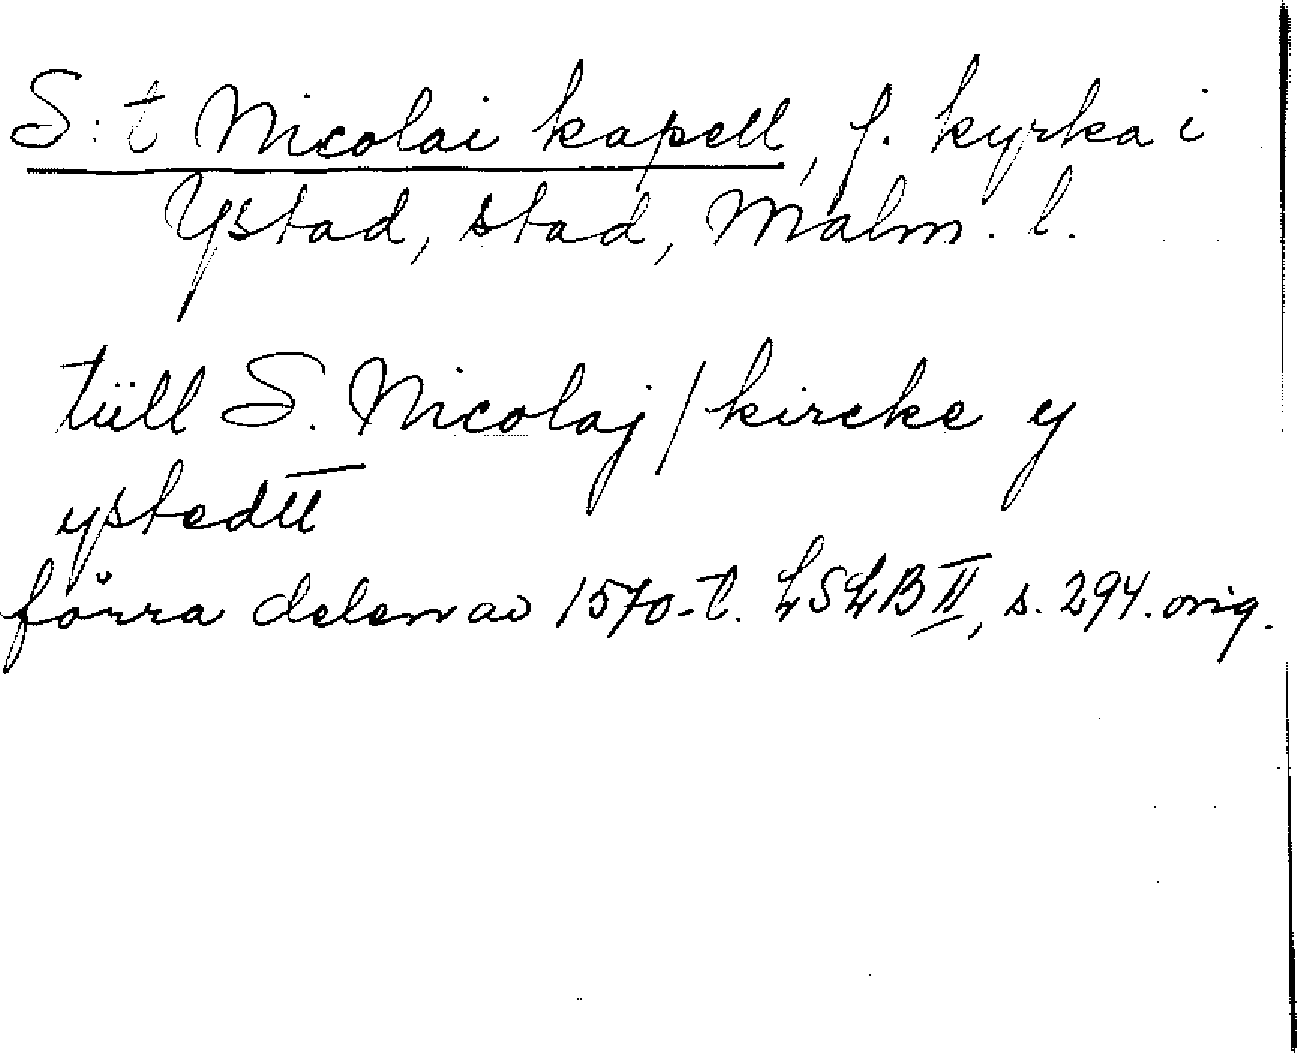 S:t Nicolai kapell, f. kyrka i
Ystad, stad, Malm. l.
tüll S. Nicolaj/kircke y
ystedtt
förra delen av 1570-t. LSLB II, s. 294. orig.